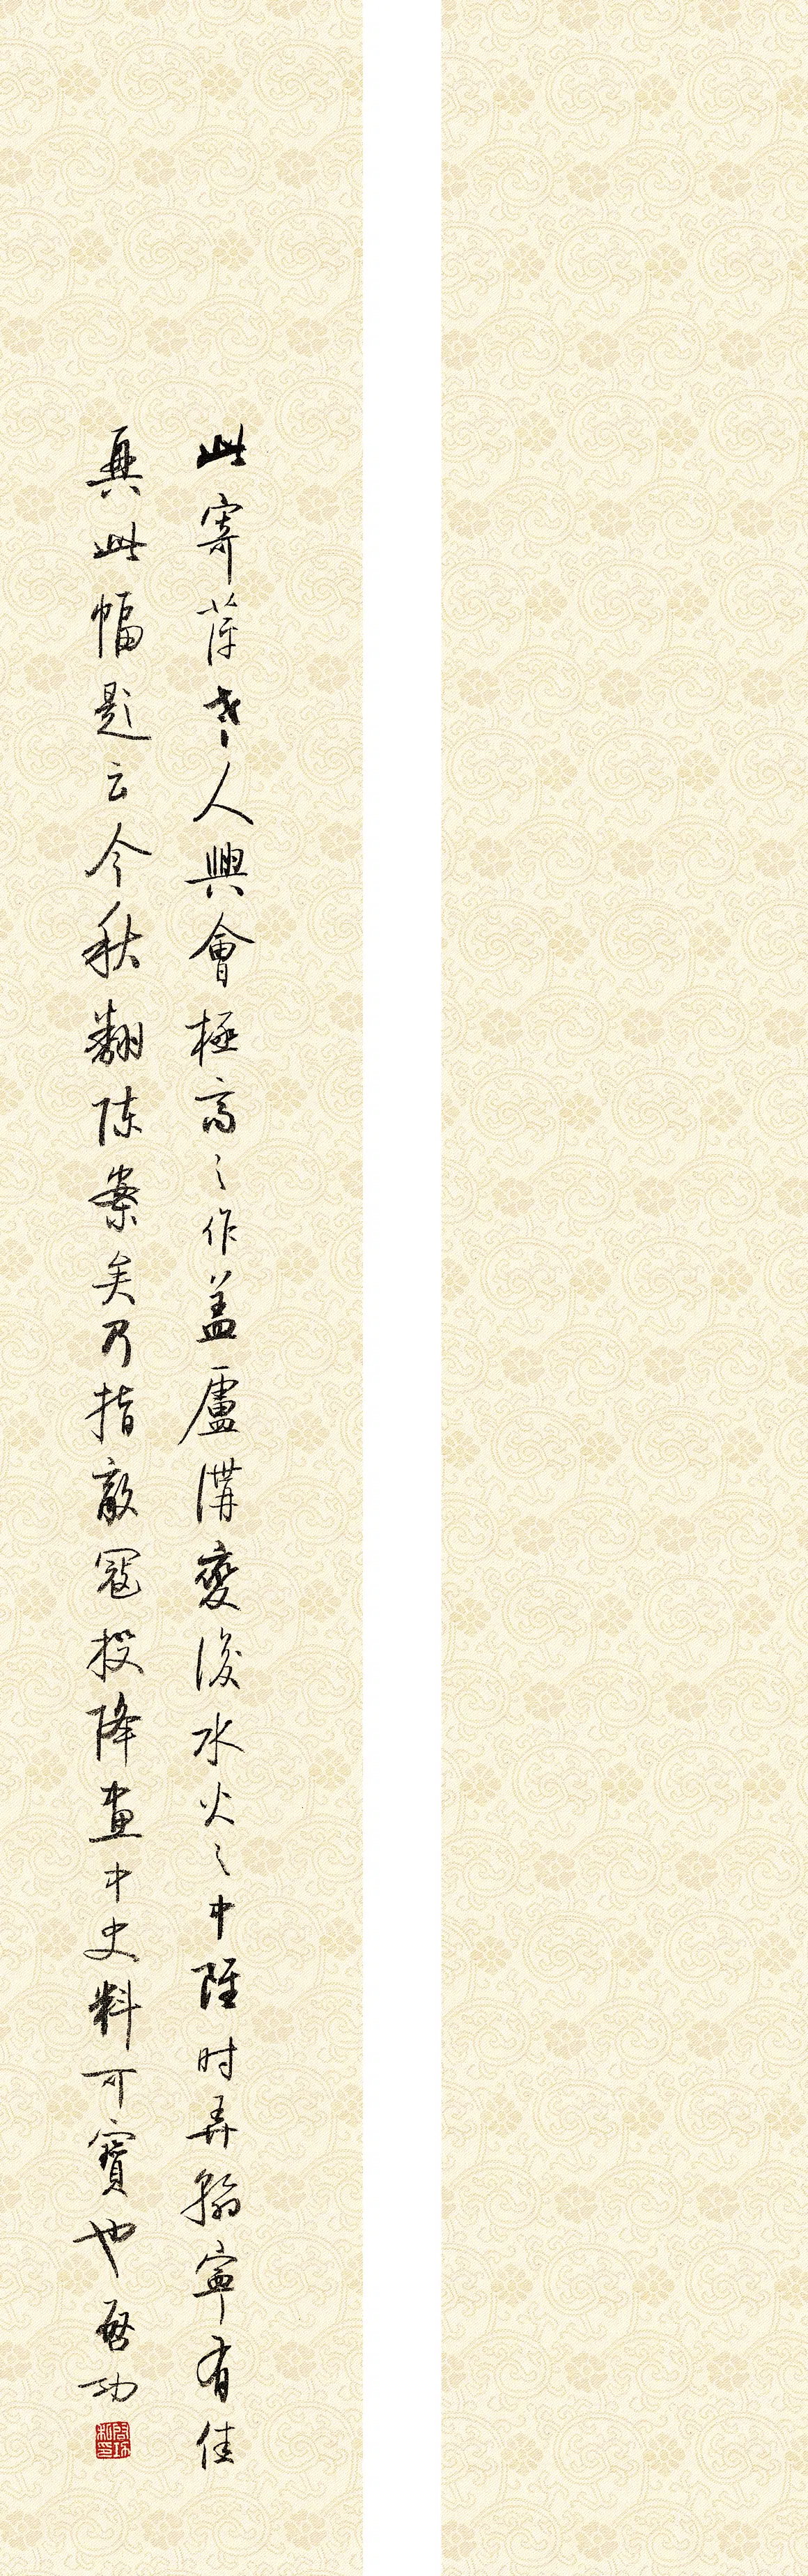 此寄萍老人興會極高之作蓋盧溝變後水火之中雖时弄翰寧有佳
興此幅題云今秋翻陳案矣乃指敵寇投降畫中史料可寶也啓功